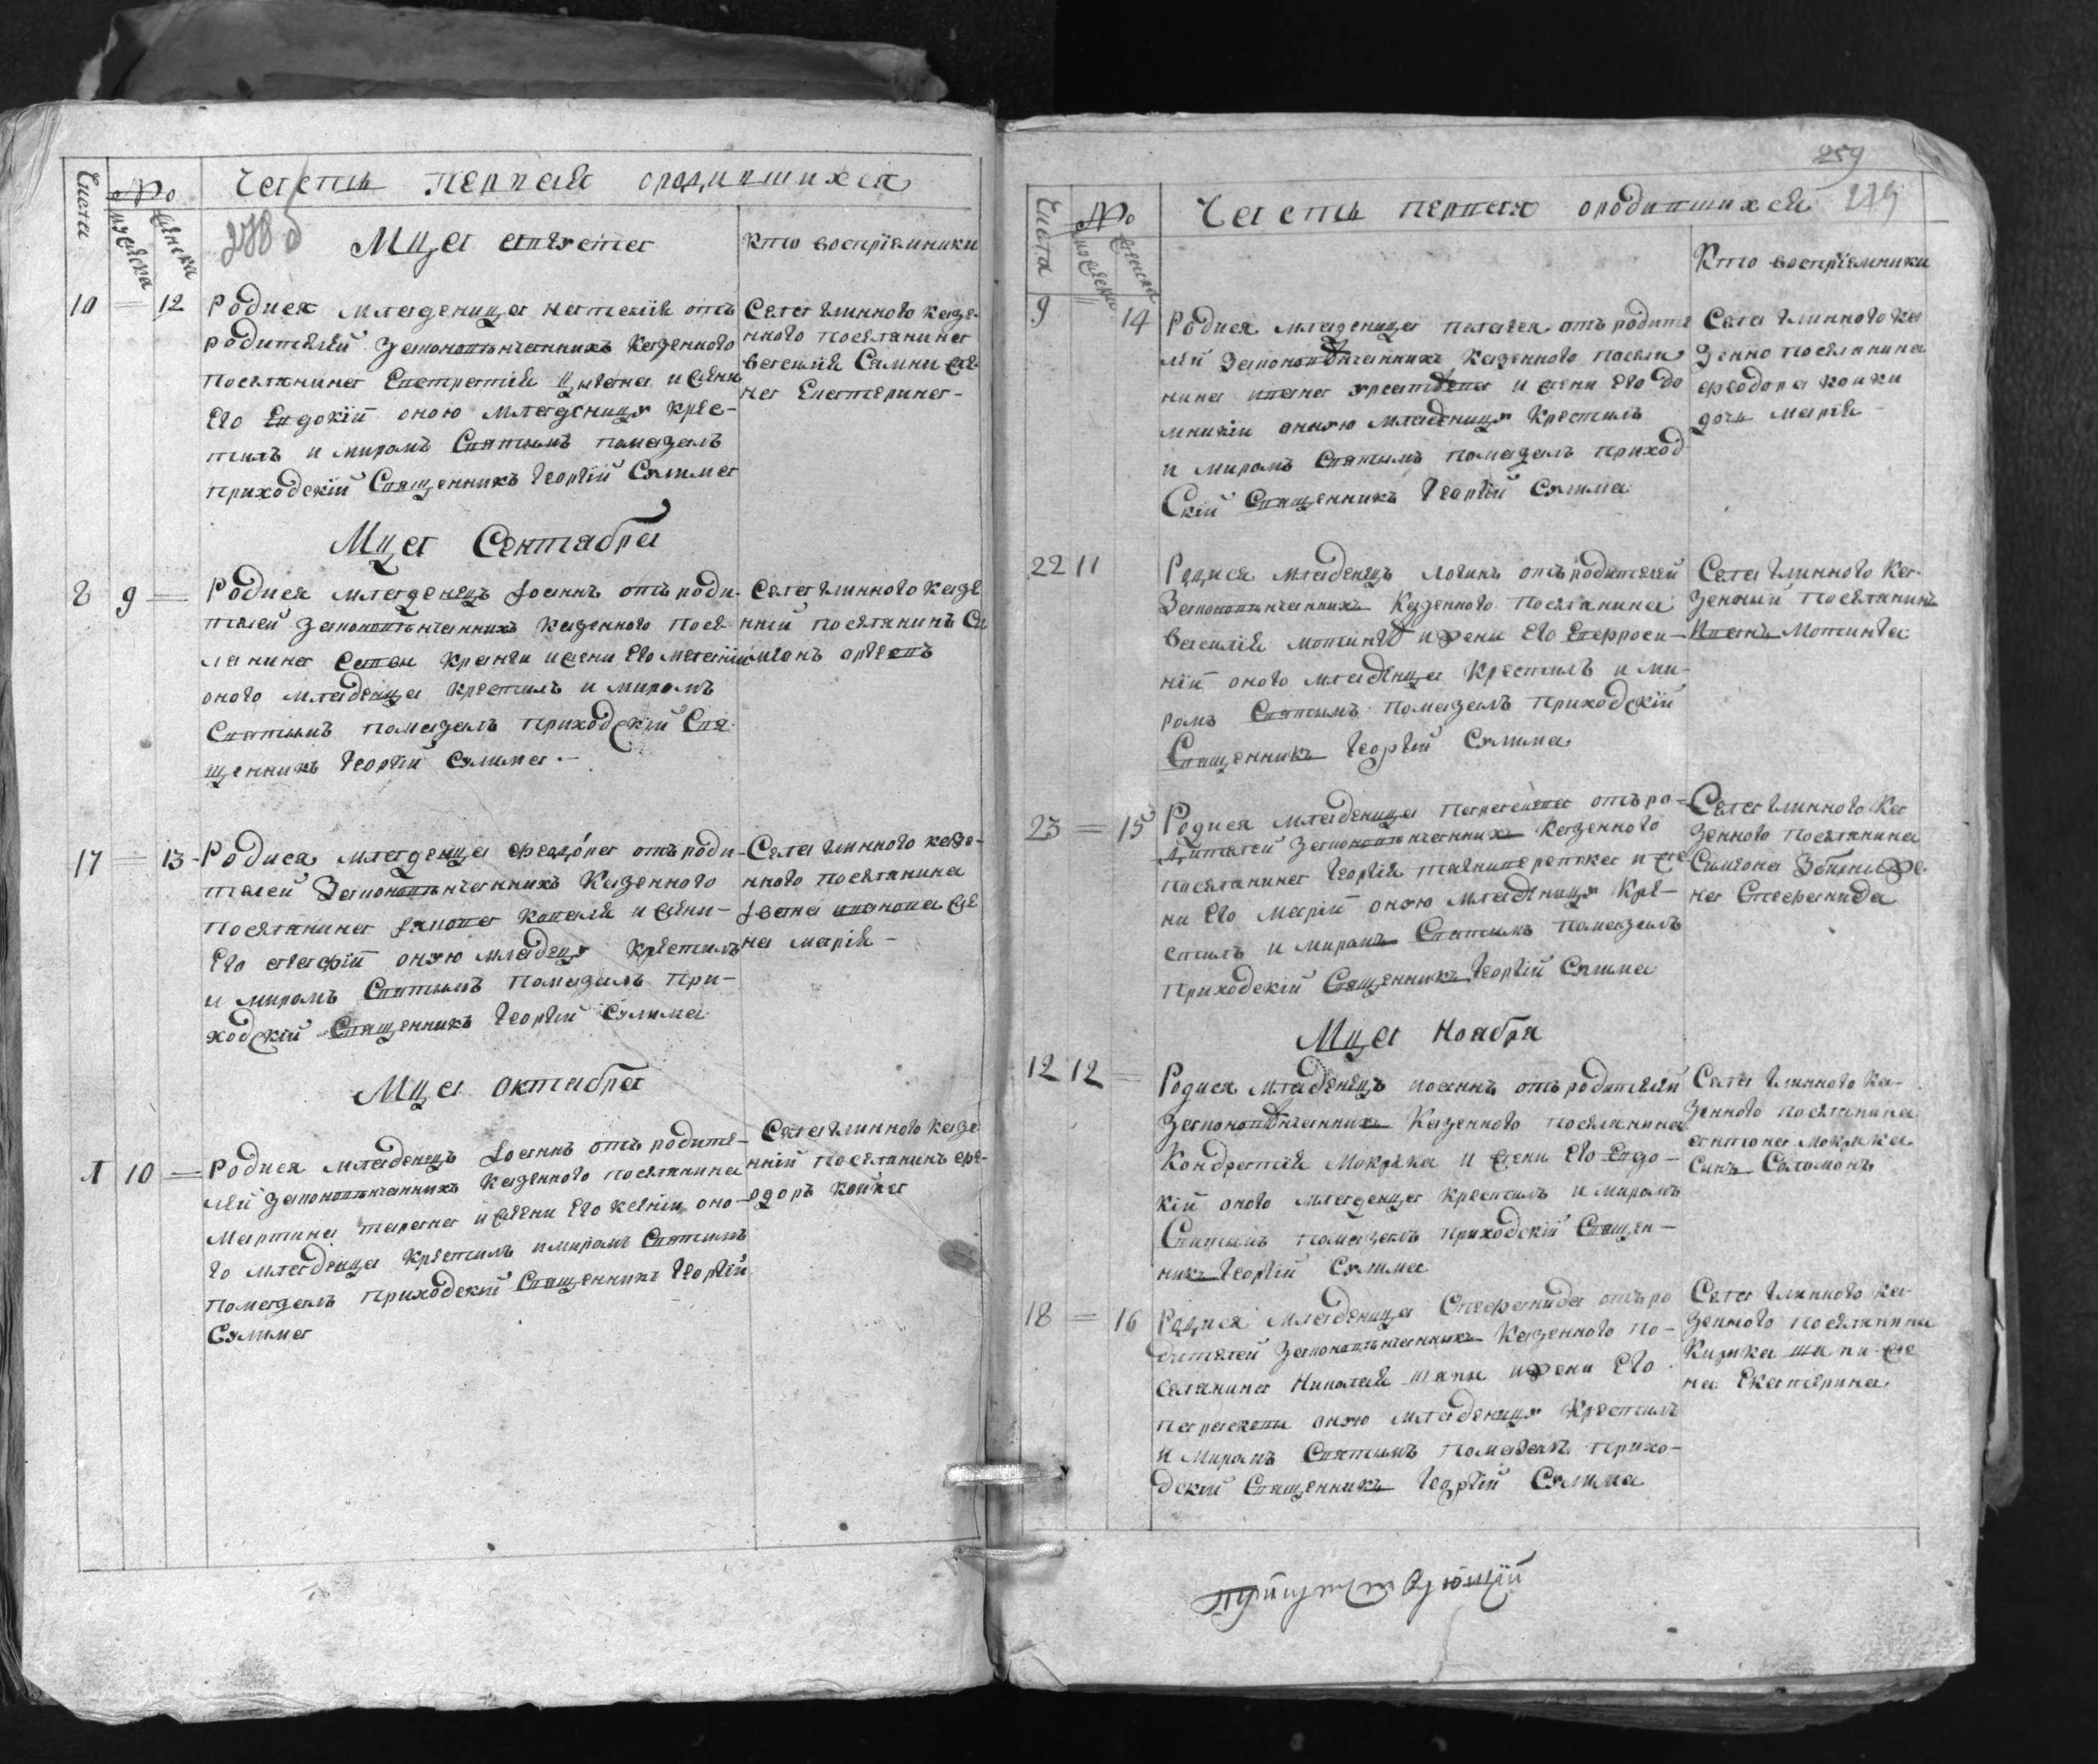 Числа
№
мужеска
женска
Часть первая ородившихся
Мца августа
Кто восприемники
10 = 12 Родися младеница наталия отъ
родителей законовѣнчанныхъ казенного
поселянина Евстратия и жени
Его Евдокіи оною младеницу крес-
тилъ и миромъ Святымъ помазалъ
приходскій Священникъ Георгій Сулима
Села Глинного казе-
нного поселянина
василия же-
на Екатерина-
Мца Сентабра
8 9 = Родися младенецъ Iоаннъ отъ роди-
телей законовѣнчанныхъ казенного посе-
лянина Савви и жени Его мелании
оного младенца крестилъ и миромъ
Святымъ помазалъ приходскій Свя-
щенникъ Георгій Сулима -
Села Глинного казе
нній поселянинъ Си
мионъ
17 = 13 Родися младеница феадóра отъ роди-
телей законовѣнчанныхъ казенного
поселянина Iакова и жени-
Его агафіи оную младецу крестилъ
и миромъ Святымъ помазалъ при-
ходскій Священникъ Георгій Сулима
Села Глинного казе-
нного поселянина
Iвана иванова же
на мария -
Мца октабра
1 10 = Родися младенецъ Iоаннъ отъ родите-
лей законовѣнчанныхъ казенного поселянина
мартина тарана и жени Его ксении оно-
го младенца крестилъ и миромъ Святымъ
помазалъ приходскій Священникъ Георгій
Сулима
Села Глинного казе
нній поселянинъ фе-
одоръ койка
259
219
Числа
№
мужеска
женска
Часть первая ородившихся
Кто восприемники
9 = 14 Родися младеница пелагея отъ родите
лей законовѣнчанныхъ казенного поселя
нина ивана и жени Его до
мникіи оную младеницу крестилъ
и миромъ Святымъ помазалъ приход
Скій Священникъ Георгій Сулима
Села Глинного ка
зенно поселянина
феодора койки
дочь мария -
22 11 Родися младенецъ логинъ отъ родителей
законовѣнчанныхъ казенного поселянина
василия и жени Его Ефроси-
ніи оного младенца крестилъ и ми-
ромъ Святымъ помазалъ приходскій
Священникъ Георгій Сулима
Села Глинного ка-
зенный поселянинъ
Иванъ
23 = 15 Родися младеница параскева отъ ро-
дителей законовѣнчанныхъ казенного
поселянина Георгия и же
ни Его маріи оную младеницу кре-
стилъ и миромъ Святымъ помазалъ
приходскій Священникъ Георгій Сулима
Села Глинного ка
зенного поселянина
Симиона же-
на Стефанида
Мца Ноабра
12 12 = Родися младенецъ иоаннъ отъ родителей
законовѣнчанныхъ казенного поселянина
Кондратия Мокряка и жени Его Евдо-
кій оного младенца крестилъ и миромъ
Святымъ помазалъ приходскій Священ-
никъ Георгій Сулима
Села Глинного ка-
зенного поселянина
антона мокряка
Синъ Соломонъ
18 = 16 Родися младеница Стефанида отъ ро
дителей законовѣнчанныхъ казенного по-
селянина Николая и жени Его
параскеви оную младеницу крестилъ
и миромъ Святымъ помазалъ прихо-
дскій Священникъ Георгій Сулима
Села Глинного ка-
зенного поселянина
же
на Екатерина